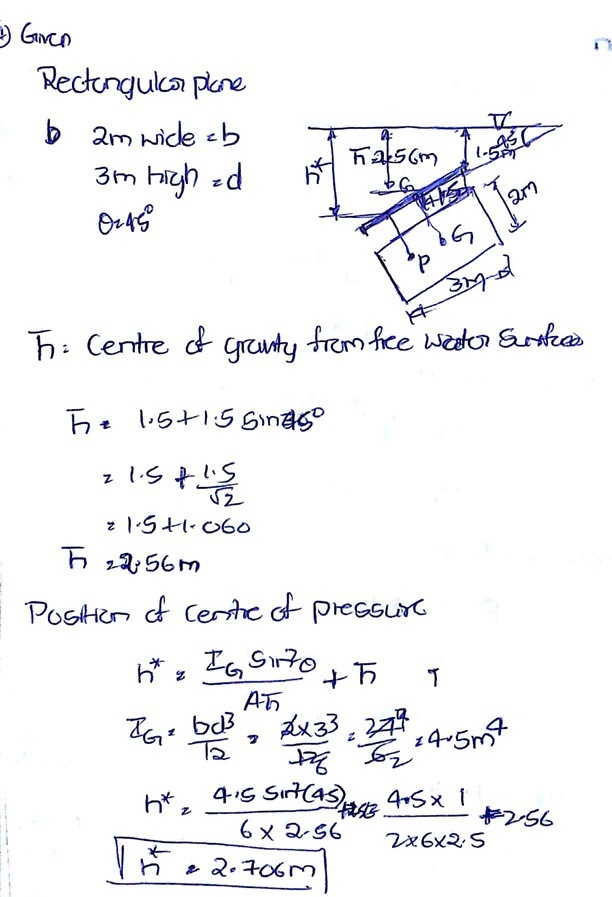 Given
Rectangular plane
b 2m wide = b
3m high = d
θ=45°
h* h̄=2.56m G 45° 1.5m
1.5 2m
G
P
3m=d
h̄ = Centre of gravity from free water surface
h̄ = 1.5+1.5 sin45°
= 1.5 + 1.5/√2
= 1.5+1.060
h̄ = 2.56m
Position of centre of pressure
h* = I_G Sin²θ / Ah̄ + h̄
I_G = bd³/12 = 2x3³/12 6 = 27 9/6 2 = 4.5m⁴
h* = 4.5 Sin²(45) / 6 x 2.56 4.5 x 1 / 2x6x2.5 + 2.56
h* = 2.706m